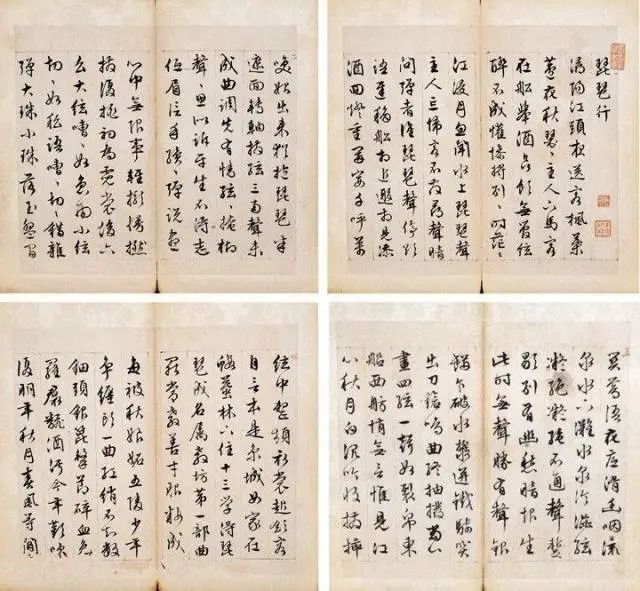 琵琶行
潯陽江頭夜送客楓葉
荻花秋瑟瑟主人下馬客
在船舉酒欲飲無管絃
醉不成懽慘將別別時茫茫
江浸月忽聞水上琵琶聲
主人忘歸客不發尋聲暗
問彈者誰琵琶聲停欲
語遲移船相近邀相見添
酒回燈重開宴千呼萬
喚始出來猶抱琵琶半
遮面轉軸撥絃三兩聲未
成曲調先有情絃絃掩抑
聲聲思似訴平生不得志
低眉信手續續彈說盡
心中無限事輕攏慢撚
抹復挑初為霓裳後六
么大絃嘈嘈如急雨小絃
切切如私語嘈嘈切切錯雜
彈大珠小珠落玉盤間
關鶯語花底滑幽咽流
泉水下灘水泉冷澀絃
凝絕凝絕不通聲暫
歇別有幽愁暗恨生
此時無聲勝有聲銀
缾乍破水漿迸鐵騎突
出刀鎗鳴曲終抽撥當心
畫四絃一聲如裂帛東
船西舫悄無言惟見江
心秋月白沉吟收撥插
絃中整頓衣裳起斂容
自言本是京城女家在
蝦蟇陵下住十三學得琵
琶成名屬教坊第一部曲
罷常教善才服妝成
每被秋娘妒五陵少年
爭纏頭一曲紅綃不知數
鈿頭銀篦擊節碎血色
羅裙翻酒污今年歡笑
復明年秋月春風等閒